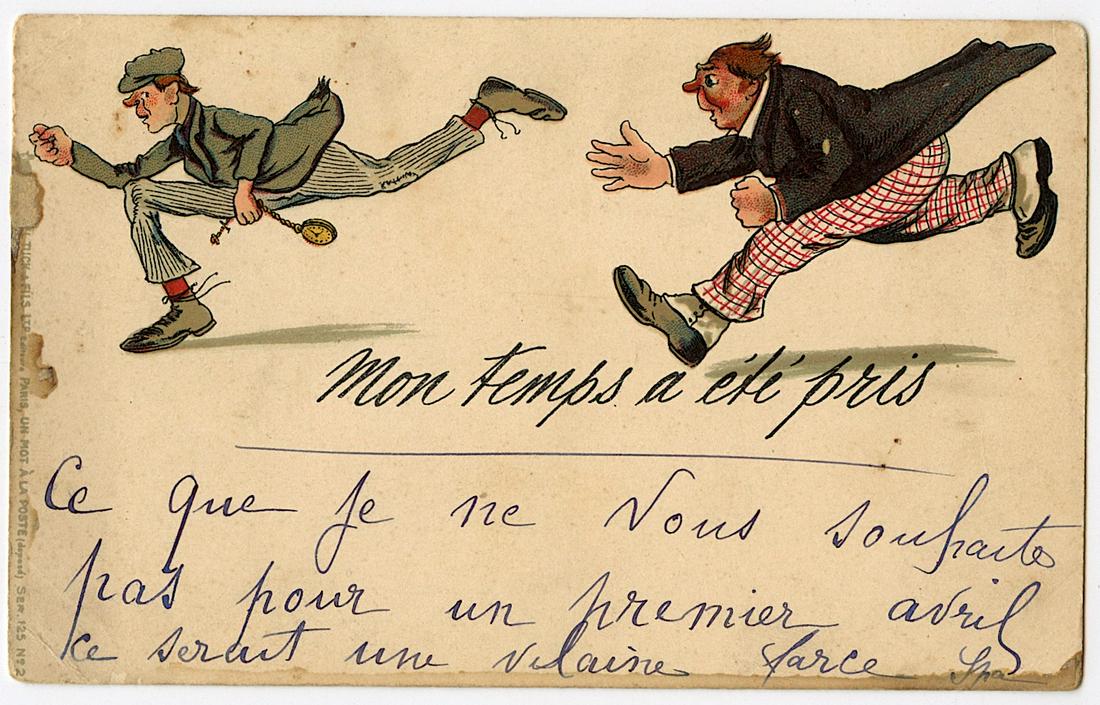 Mon temps a été pris
Ce que je ne Vous souhaite
pas pour un premier avril
ce serait une vilaine farce Spa
TUCK & FILS LTD Editeurs PARIS, UN MOT À LA POSTE (déposé) SER. 125 Nº 2